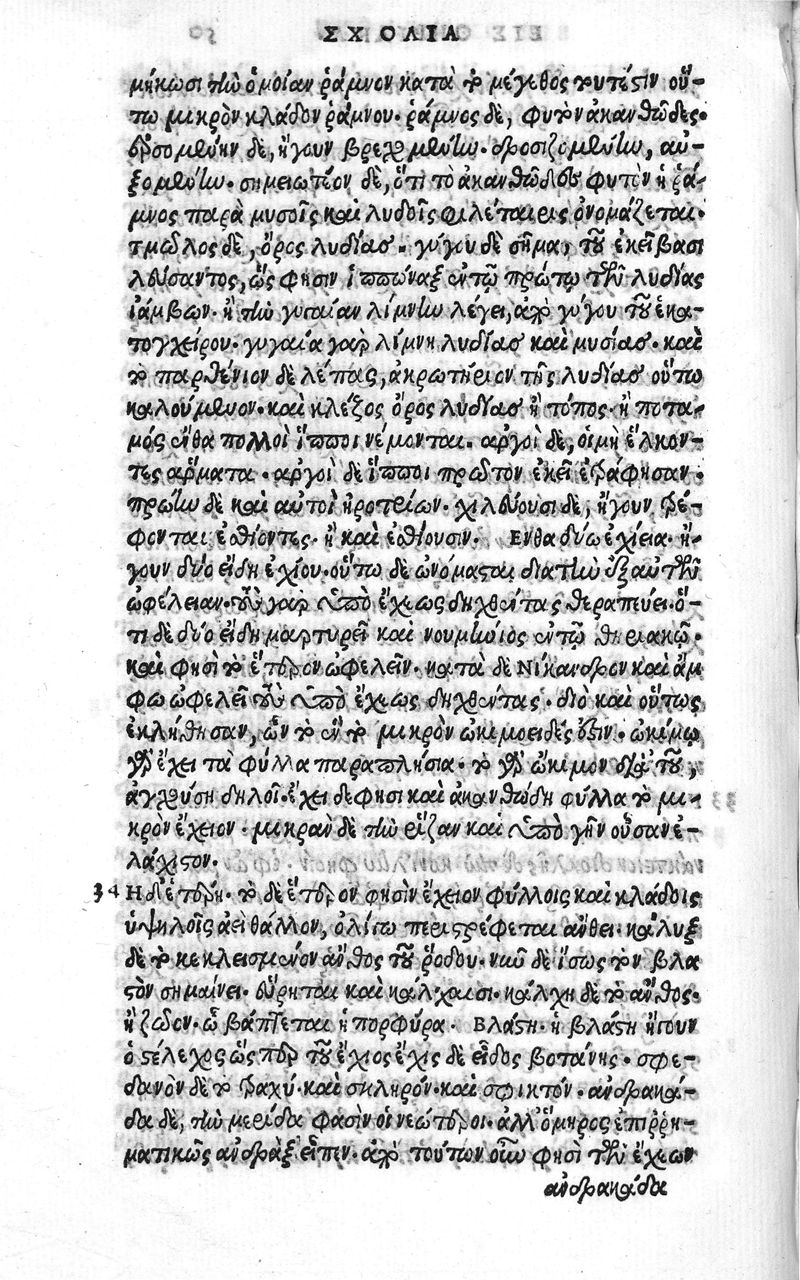 ΣΧΟΛΙΑ
μήκωσι τὴν ὁμοίαν ῥάμνον κατὰ τὸ μέγεθος τουτέστιν οὕ-
τω μικρὸν κλάδον ῥάμνου· ῥάμνος δὲ, φυτὸν ἀκανθῶδες·
ἐρσομένην δὲ, ἤγουν βρεχομένην· δροσιζομένην, αὐ-
ξομένην· σημειωτέον δὲ, ὅτι τὸ ἀκανθῶδες φυτὸν ἡ ῥά-
μνος παρὰ μυσοῖς καὶ λυδοῖς φιλέταιρις ὀνομάζεται·
τμῶλος δὲ, ὄρος λυδίας· γύγου δὲ σῆμα, τοῦ ἐκεῖ βασι
λεύσαντος, ὥς φησιν ἱππώναξ ἐν τῷ πρώτῳ τῶν λυδίας
ἰάμβων· ἢ τὴν γυγαίαν λίμνην λέγει, ἀπὸ γύγου τοῦ ἑκα-
τογχείρου· γυγαία γὰρ λίμνη λυδίας καὶ μυσίας· καὶ
τὸ παρθένιον δὲ λέπας, ἀκρωτήριον τῆς λυδίας οὕτω
καλούμενον· καὶ κλέζος ὄρος λυδίας ἢ τόπος· ἢ ποτα-
μός ἔνθα πολλοὶ ἵπποι νέμονται· ἀργοὶ δὲ, οἱ μὴ ἕλκον-
τες ἅρματα· ἀργοὶ δὲ ἵπποι πρῶτον ἐκεῖ ἐτράφησαν·
πρώην δὲ καὶ αὐτοὶ ἠροτρίων· χιλεύουσι δὲ, ἤγουν τρέ-
φονται ἐσθίοντες· ἢ καὶ ἐσθίουσιν. Ενθα δύω ἐχίεια· ἤ-
γουν δύο εἴδη ἐχίου· οὕτω δὲ ὠνόμασται διὰ τὴν ἐξ αὐτῶν
ὠφέλειαν· τοὺς γὰρ ὑπὸ ἔχεως δηχθέντας θεραπεύει· ὅ-
τι δὲ δύο εἴδη μαρτυρεῖ καὶ νουμήνιος ἐν τῷ θηριακῷ·
καὶ φησὶ τὸ ἕτερον ὠφελεῖν· κατὰ δὲ Νίκανδρον καὶ ἄμ
φω ὠφελεῖ τοὺς ὑπὸ ἔχεως δηχθέντας· διὸ καὶ οὕτως
ἐκλήθησαν, ὧν τὸ ἓν τὸ μικρὸν ὠκιμοειδές ἐστιν· ὠκίμῳ
γὰρ ἔχει τὰ φύλλα παραπλήσια· τὸ γὰρ ὤκιμον διὰ τοῦ,
ἀγχούση δηλοῖ· ἔχει δέ φησι καὶ ἀκανθώδη φύλλα τὸ μι-
κρὸν ἔχειον· μικρὰν δὲ τὴν ῥίζαν καὶ ὑπὸ γῆν οὖσαν ἐ-
λάχιστον.
34 Η δ' ἑτέρη· τὸ δὲ ἕτερον φησὶν ἔχειον φύλλοις καὶ κλάδοις
ὑψηλοῖς ἀεὶ θάλλον, ὀλίγῳ περιστρέφεται ἄνθει· κάλυξ
δὲ τὸ κεκλεισμένον ἄνθος τοῦ ῥόδου· νῦν δὲ ἴσως τὸν βλα
στὸν σημαίνει· εὕρηται καὶ κάλχαισι· κάλχη δὲ τὸ ἄνθος·
ἢ ζῶον· ᾧ βάπτεται ἡ πορφύρα. Βλάστη· ἡ βλάστη ἤγουν
ὁ στέλεχος ὥσπερ τοῦ ἔχιος ἔχις δὲ εἶδος βοτάνης· σφε-
δανὸν δὲ τὸ τραχύ· καὶ σκληρόν· καὶ σφικτόν· ἀνδρακά-
δα δὲ, τὴν μερίδα φασὶν οἱ νεώτεροι· ἀλλ' ὅμηρος ἐπιῤῥη-
ματικῶς ἀνδρὰξ εἶπεν· ἀπὸ τούτων οὖν φησὶ τῶν ἐχίων
ἀνδρακάδα